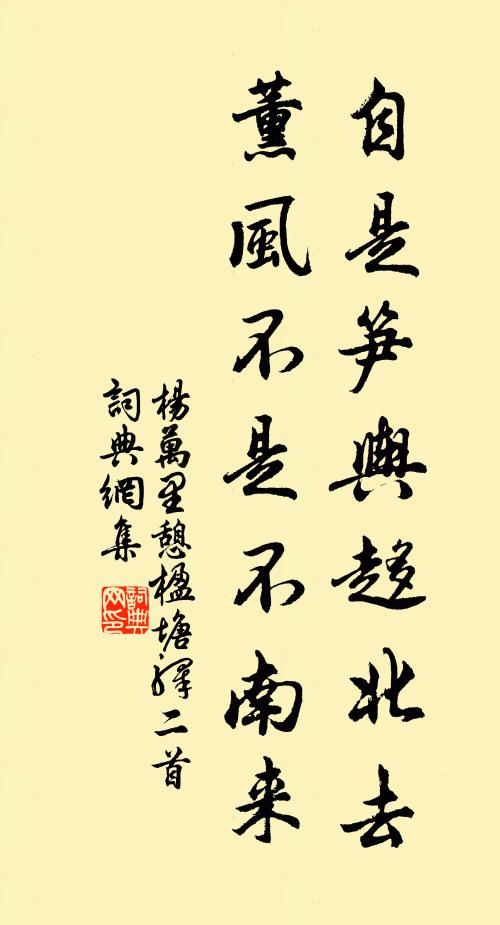 自是笋輿趍北去
薰風不是不南来
楊萬里憩楹塘驛二首
詞典網集
詞典网印